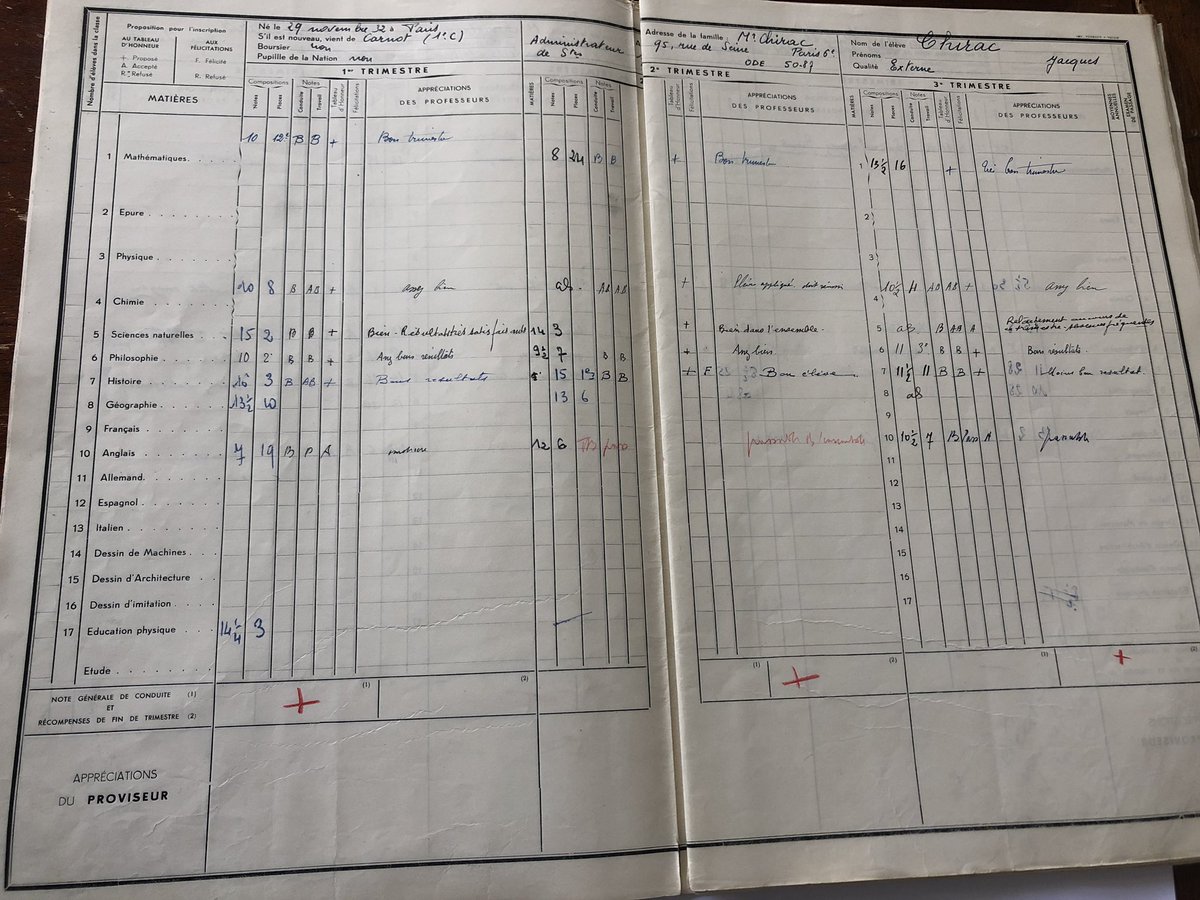 Nombre d'élèves dans la classe
Proposition pour l'inscription
AU TABLEAU D'HONNEUR
AUX FÉLICITATIONS
+. Proposé
A. Accepté
R. Refusé
F. Félicité
R. Refusé
Né le 29 novembre 32 à Paris
S'il est nouveau, vient de Carnot (1e C)
Boursier non
Pupille de la Nation non
Administrateur
de Stés
Adresse de la famille : Mr Chirac
95, rue de Seine Paris 6e
ODE 50-81
Nom de l'élève Chirac
Prénoms Jacques
Qualité Externe
1er TRIMESTRE
2e TRIMESTRE
3e TRIMESTRE
MATIÈRES
Compositions Notes
Notes Places Conduite Travail Tableau d'Honneur Félicitations
APPRÉCIATIONS
DES PROFESSEURS
MATIÈRES
Compositions Notes
Notes Places Conduite Travail
Tableau d'Honneur Félicitations
APPRÉCIATIONS
DES PROFESSEURS
MATIÈRES
Compositions Notes
Notes Places Conduite Travail Tableau d'Honneur Félicitations
APPRÉCIATIONS
DES PROFESSEURS
MOYENNES ANNUELLES
EXAMEN DE PASSAGE
10 12e B B + Bon trimestre
1 Mathématiques 8 24 B B + Bon trimestre 1 13 1/2 16 + Très bon trimestre
2 Epure 2
3 Physique 3
10 8 B AB + assez bien ab. AB AB + 10 1/2 11 AB AB + assez bien
4 Chimie 4
5 Sciences naturelles 15 2 B B + Bien - Résultats très satisfaisants 14 3 + Bien dans l'ensemble. 5 ab B AB A Relâchement au cours de ce trimestre - absences fréquentes
6 Philosophie 10 2e B B + Assez bons résultats 9 1/2 7 B B + Assez bien 6 11 3e B B + Bons résultats.
7 Histoire 16 3 B AB + Bons résultats 15 13 B B + F Bon élève 7 11 1/2 11 B B + Moins bon résultat.
8 Géographie 13 1/2 10 13 6 8 ab
9 Français 9
10 Anglais 7 19 B P A médiocre 12 6 TB 10 10 1/2 7 B Pass A passable
11 Allemand 11
12 Espagnol 12
13 Italien 13
14 Dessin de Machines 14
15 Dessin d'Architecture 15
16 Dessin d'imitation 16
17 Education physique 14 1/4 3 17
Etude
NOTE GÉNÉRALE DE CONDUITE (1)
ET
RÉCOMPENSES DE FIN DE TRIMESTRE (2)
+ (1) (2) (1) + (2) (3) + (2)
APPRÉCIATIONS
DU PROVISEUR